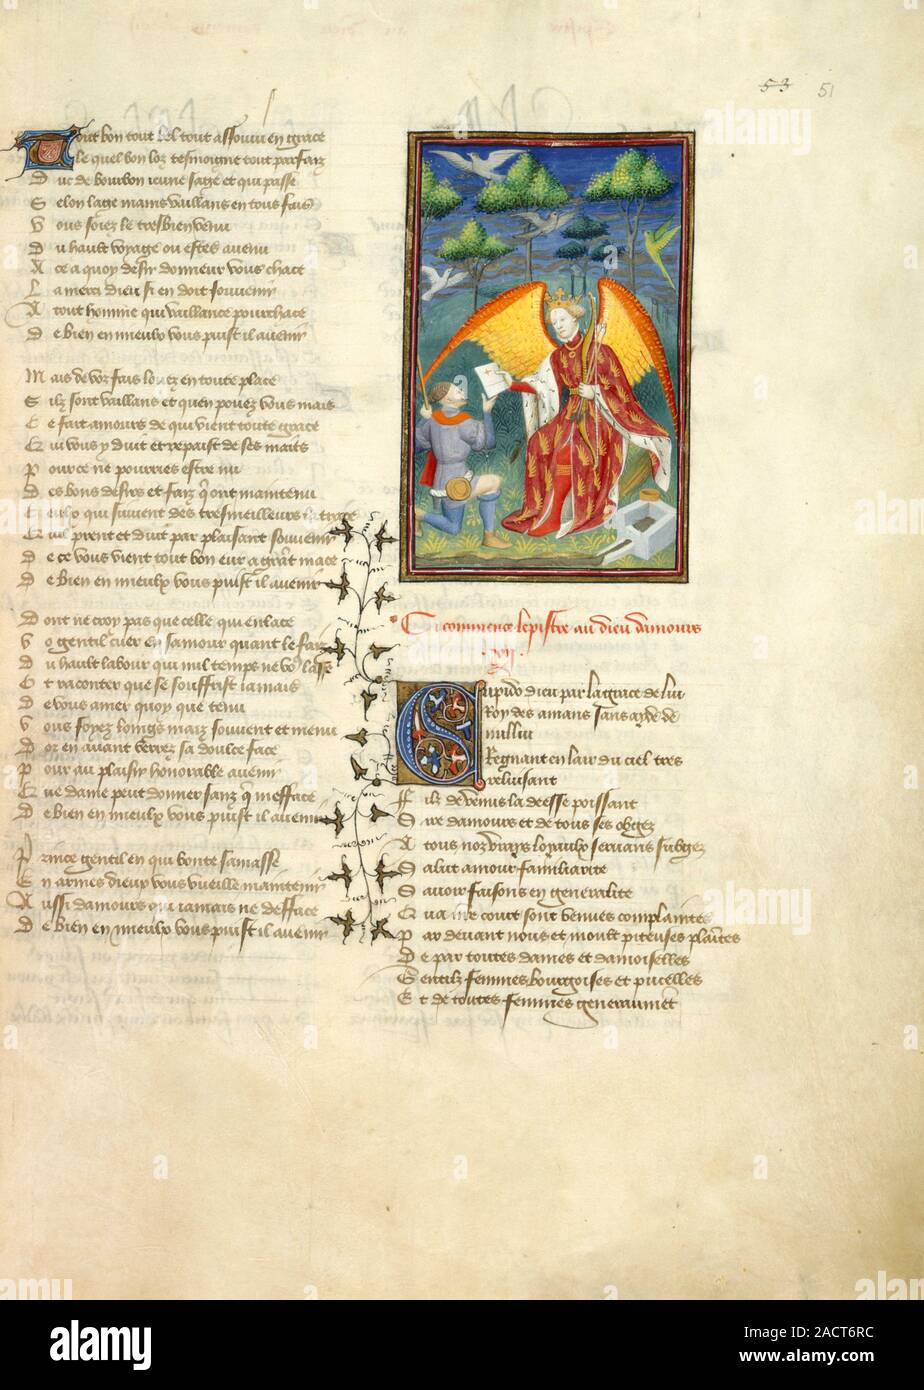 53 51
Tout bon tout bel tout assouui en grace
Le quel bon loz tesmoigne tout par faiz
Duc de bourbon ieune sage et qui passe
Selon laage mains vaillans en tous fais
Vous soiez le tresbien venu
Du hault voyage ou estes auenu
A ce a quoy desir donneur vous chace
La merci dieu si en doit souuenir
A tout homme qui vaillance pourchace
De bien en mieulx vous puist il auenir
Mais de voz fais louez en toute place
Silz sont vaillans et quen pouez vous mais
Ce fait amours de qui vient toute grace
Qui vous y duit et repaist de ses maits
Pour ce ne pourries estre nu
Des bons desirs et faiz qͥ ont maintenu
Ceulx qui suiuent des tresmeilleurs la trace
Qui prent et duit par plaisant souuenir
De ce vous vient tout bon eur a grãt mace
De bien en mieulx vous puist il auenir
Dont ne croy pas que celle qui enlace
Vo gentil cuer en samour quant le faiz
Du hault labour qui mil temps ne voꝰ lasse
Et raconter que se souffrist iamais
De vous amer quoy que tenu
Vous soyez loings maiz souuent et menu
Dor en auant verrez sa doulce face
Pour au plaisir honorable auenir
Que dame peut donner sanz qͥ meffacẽ
De bien en mieulx vous puist il auenir
Prince gentil en qui bonte samasse
En armes dieux vous vueille maintenir
Aussi damours qui iamais ne defface
De bien en mieulx vous puist il auenir
Cy commence lepistre au dieu damours
.xvij.
Cupido dieu par la grace de lui
Roy des amans sans ayde de
nullui
Regnant en lair du ciel tres
reluisant
Filz de venus la deesse poissant
Sire damours et de tous ses obgez
A tous noz vrays loyaulx seruans subgez
Salut amour familiarite
Sauoir faisons en generalite
Qua nr̃e court sont venues complaintes
Par deuant nous et moult piteuses plaĩtes
De par toutes dames et damoiselles
Gentilz femmes bourgoises et pucelles
Et de toutes femmes generaumẽt
alamy
Image ID: 2ACT6RC
www.alamy.com